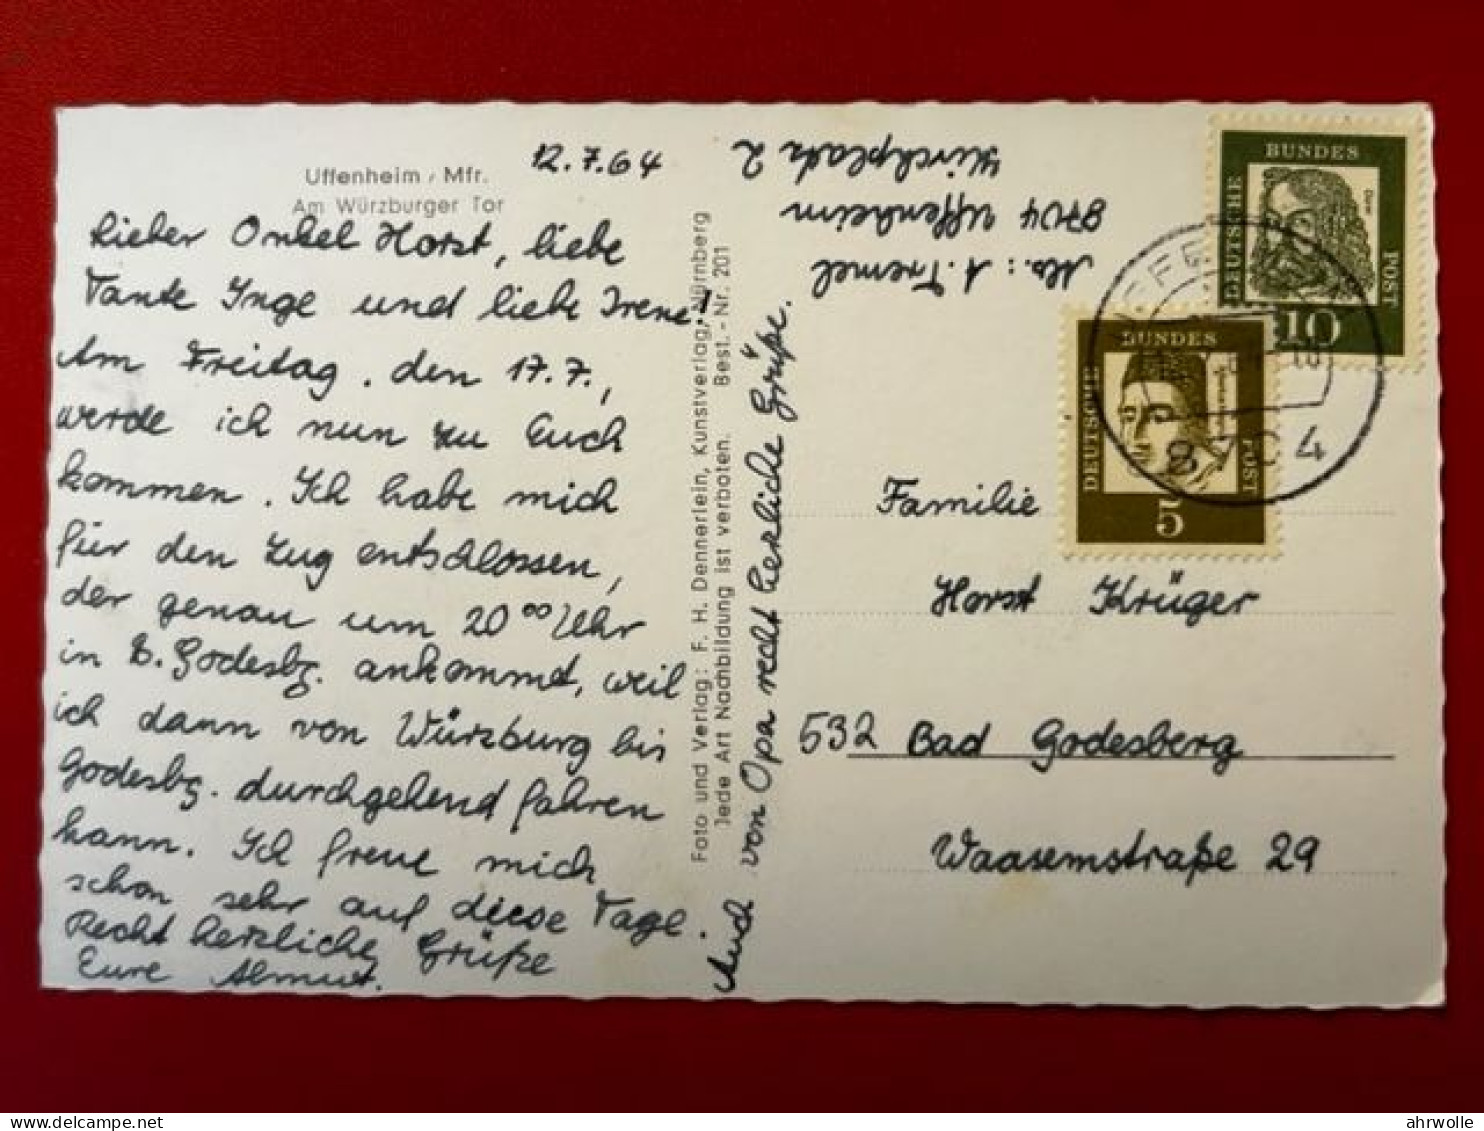 Uffenheim / Mfr.
Am Würzburger Tor
12.7.64
Lieber Onkel Horst, liebe
Tante Inge und liebe Irene!
Am Freitag, den 17.7.,
werde ich nun zu Euch
kommen. Ich habe mich
für den Zug entschlossen,
der genau um 20⁰⁰ Uhr
in B. Godesbg. ankommt, weil
ich dann von Würzburg bis
Godesbg. durchgehend fahren
kann. Ich freue mich
schon sehr auf diese Tage.
Recht herzliche Grüße
Eure Almut.
Auch von Opa recht herzliche Grüße.
Foto und Verlag: F. H. Dennerlein, Kunstverlag, Nürnberg
Jede Art Nachbildung ist verboten. Best.-Nr. 201
Abs.: A. Tremel
8704 Uffenheim
Kirchplatz 2
DEUTSCHE BUNDES POST
Dürer
10
DEUTSCHE BUNDES POST
5
8704
Familie
Horst Krüger
532 Bad Godesberg
Waasemstraße 29
delcampe.net
ahrwolle